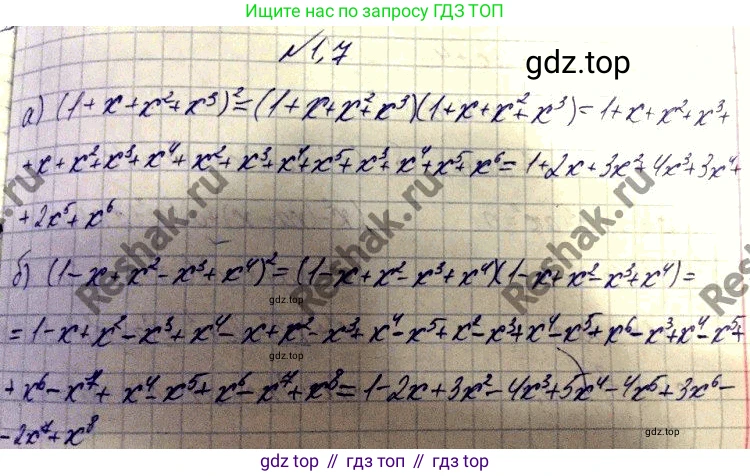 Ищите нас по запросу ГДЗ ТОП
№1,7
gdz.top
а) (1+x+x²+x³)²=(1+x+x²+x³)(1+x+x²+x³)=1+x+x²+x³+
+x+x²+x³+x⁴+x²+x³+x⁴+x⁵+x³+x⁴+x⁵+x⁶=1+2x+3x²+4x³+3x⁴+
+2x⁵+x⁶
Reshak.ru
Reshak.ru
Reshak.ru
б) (1-x+x²-x³+x⁴)²=(1-x+x²-x³+x⁴)(1-x+x²-x³+x⁴)=
gdz.top
=1-x+x²-x³+x⁴-x+x²-x³+x⁴-x⁵+x²-x³+x⁴-x⁵+x⁶-x³+x⁴-x⁵+
+x⁶-x⁷+x⁴-x⁵+x⁶-x⁷+x⁸=1-2x+3x²-4x³+5x⁴-4x⁵+3x⁶-
-2x⁷+x⁸
gdz.top
gdz.top // gdz.top // gdz.top